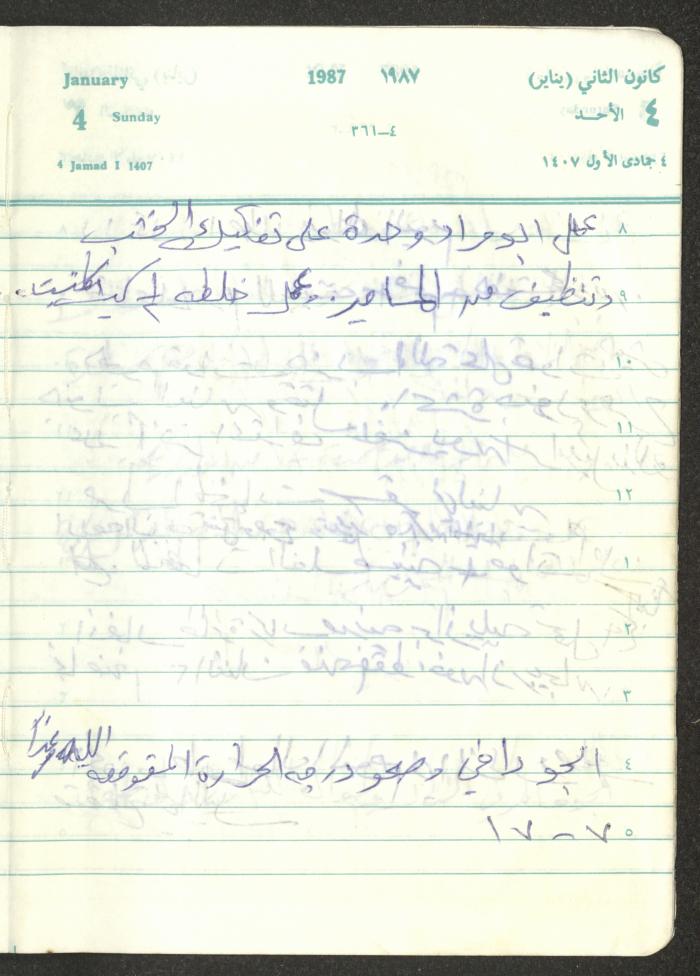 January 1987 ١٩٨٧ كانون الثاني (يناير)
4 Sunday ٤ الأحد
٤-٣٦١
4 Jamad I 1407 ٤ جمادى الأول ١٤٠٧
٨ عمل اليوم وحدة على تفكيك الخشب
٩ وتنظيف من المسامير. وعمل خلطه
١٠
١١
١٢
١
٢
٣
٤ الجو دافي وصحو درجه الحرارة المتوقعه الليله وغداً
٥ ٧ - ١٧